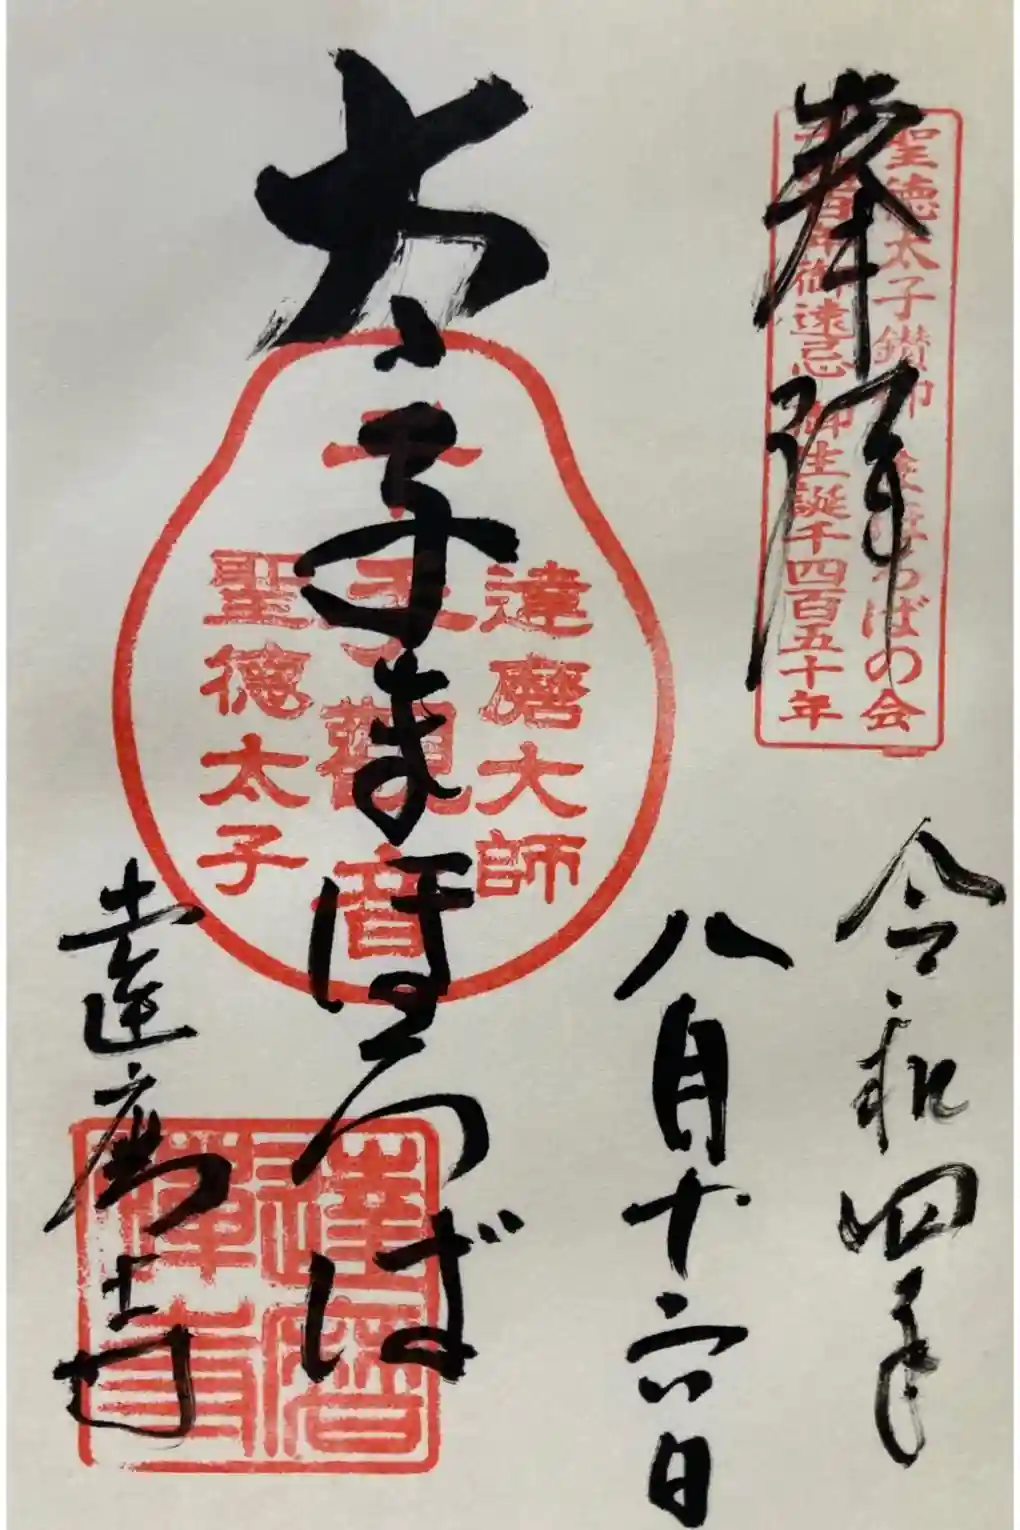 奉拝
聖徳太子鑽仰 まほろばの会
千四百年御遠忌 御生誕千四百五十年
令和四年
八月十六日
太子まほろば
達磨大師
千手観音
聖徳太子
達磨寺
達磨
禅寺